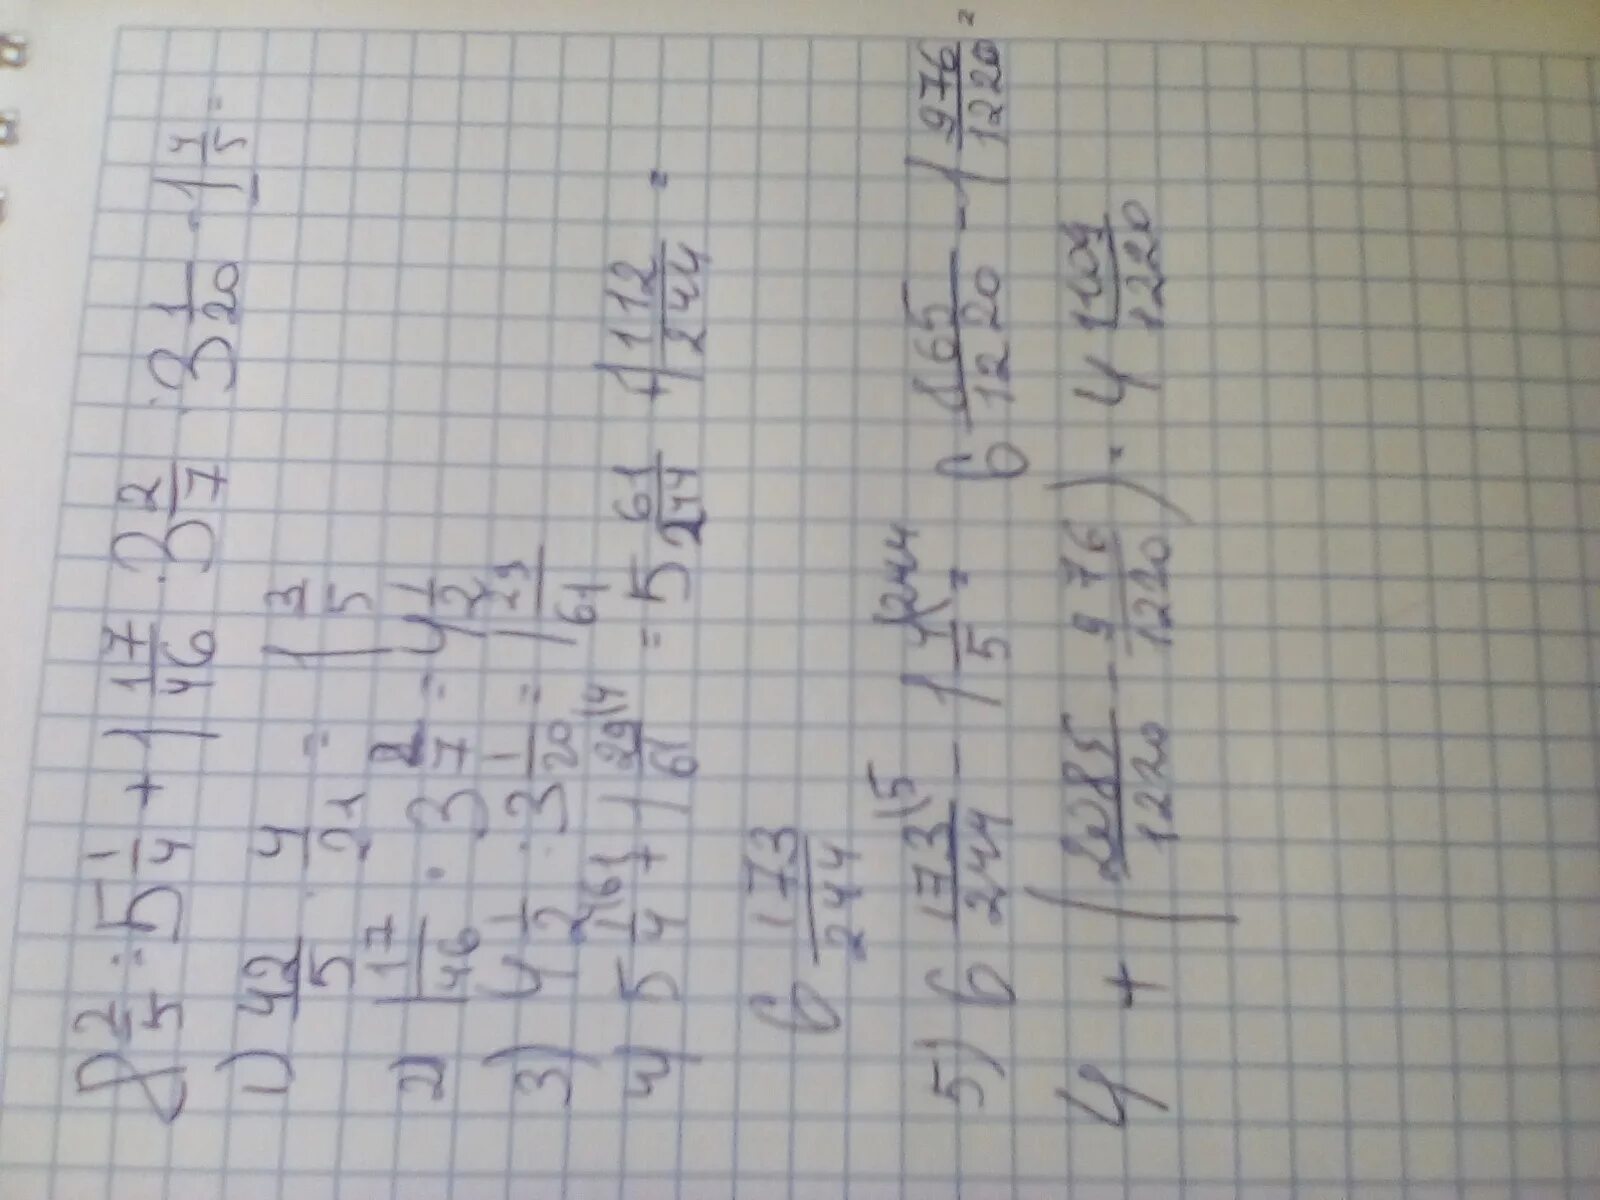 8 2/5 : 5 1/4 + 1 17/46 · 3 2/7 : 3 1/20 - 1 4/5 =
1) 42/5 · 4/21 = 1 3/5
2) 1 17/46 · 3 2/7 = 4 1/2
3) 4 1/2 : 3 1/20 = 1 29/61
4) 5 1/4 \61 + 1 29/61 \4 = 5 61/244 + 1 112/244 =
6 173/244
5) 6 173/244 \5 - 1 4/5 \244 = 6 865/1220 - 1 976/1220 =
4 + (2085/1220 - 976/1220) = 4 1109/1220